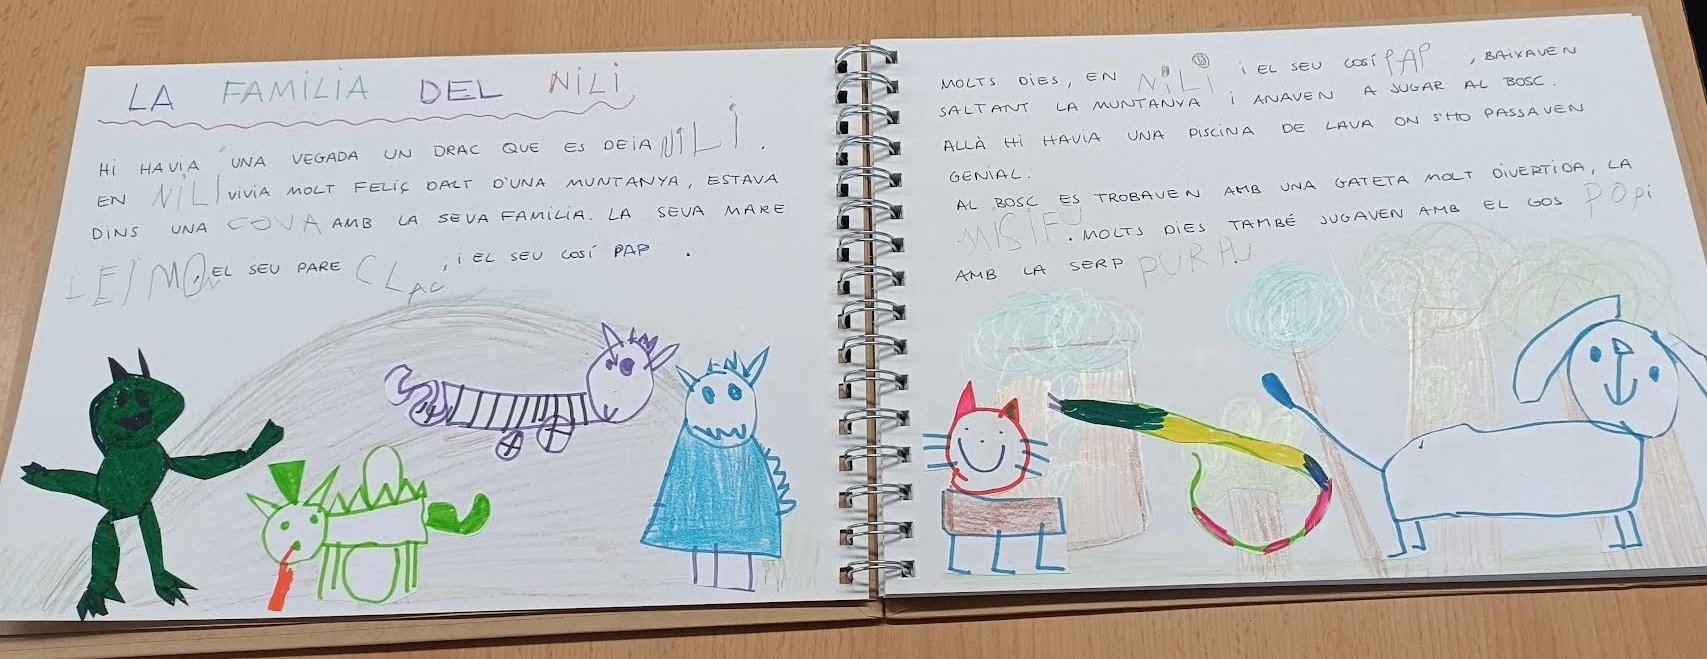 LA FAMILIA DEL NILI
HI HAVIA UNA VEGADA UN DRAC QUE ES DEIA NILI.
EN NILI VIVIA MOLT FELIÇ DALT D'UNA MUNTANYA, ESTAVA
DINS UNA COVA AMB LA SEVA FAMILIA. LA SEVA MARE
EL SEU PARE CLAC, I EL SEU COSÍ PAP.
MOLTS DIES, EN NILI I EL SEU COSÍ PAP, BAIXAVEN
SALTANT LA MUNTANYA I ANAVEN A JUGAR AL BOSC.
ALLÀ HI HAVIA UNA PISCINA DE LAVA ON S'HO PASSAVEN
GENIAL.
AL BOSC ES TROBAVEN AMB UNA GATETA MOLT DIVERTIDA, LA
MISIFÚ. MOLTS DIES TAMBÉ JUGAVEN AMB EL GOS POPI
AMB LA SERP